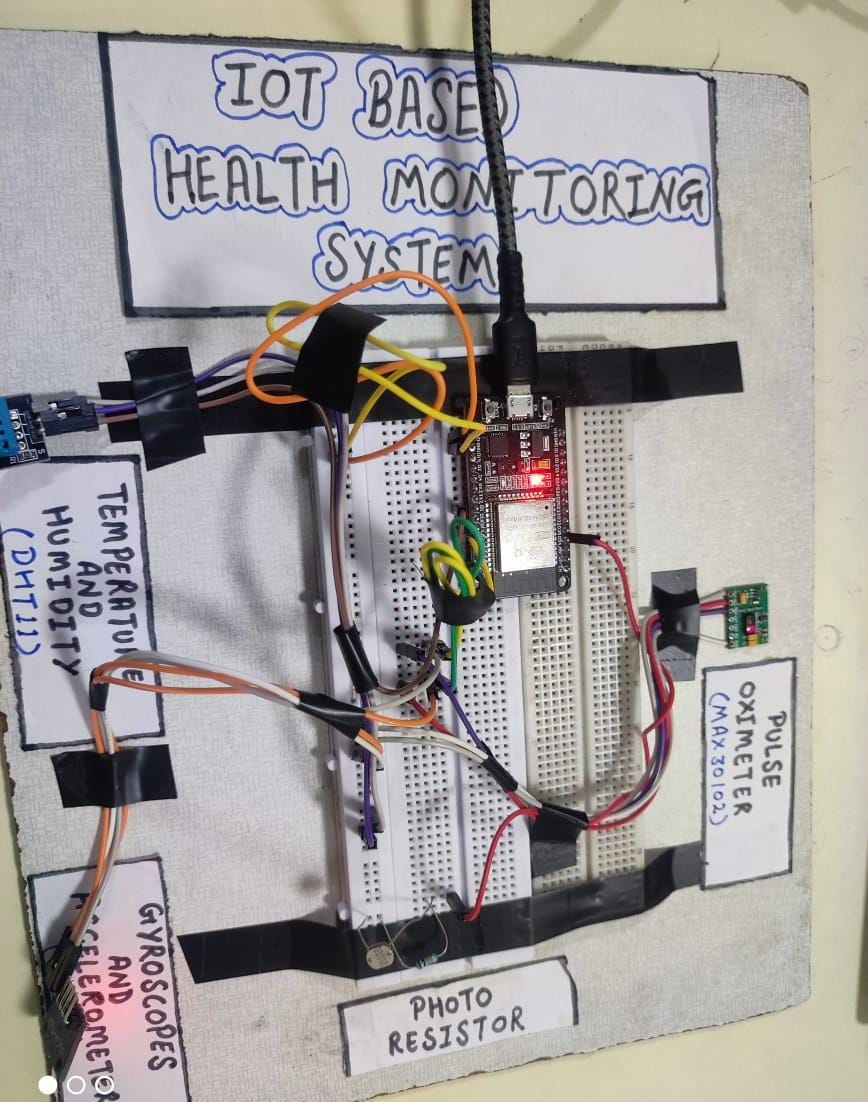 IOT BASED
HEALTH MONITORING
SYSTEM
TEMPERATURE
AND
HUMIDITY
(DHT11)
PULSE
OXIMETER
(MAX30102)
GYROSCOPES
AND
ACCELEROMETOR
PHOTO
RESISTOR
ESP-32